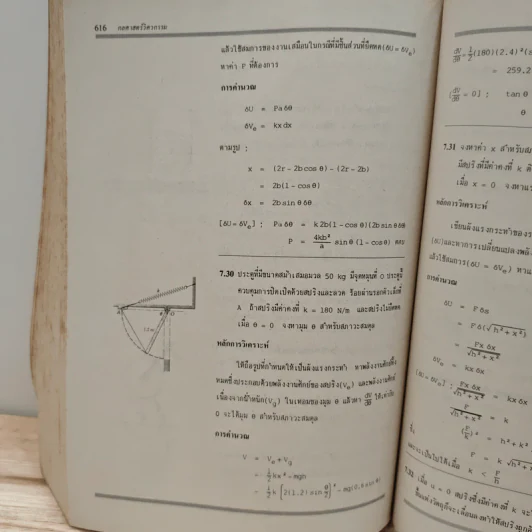 616 กลศาสตร์วิศวกรรม
แล้วใช้สมการของงานเสมือนในกรณีที่มีชิ้นส่วนที่ยืดหด (δU = δVe)
หาค่า P ที่ต้องการ
การคำนวณ
δU = Paδθ
δVe = kxdx
ตามรูป :
x = (2r - 2b cos θ) - (2r - 2b)
= 2b(1 - cos θ)
δx = 2b sin θ δθ
[δU = δVe] : Paδθ = k 2b(1 - cos θ)(2b sin θ δθ
P = 4kb²/a sin θ (1 - cos θ) ตอบ
7.30 ประตูที่มีขนาดสม่ำเสมอมวล 50 kg มีจุดหมุนที่ O ประตูนี้
ควบคุมการปิดเปิดด้วยสปริงและลวด ร้อยผ่านรอกตัวเล็กที่
A ถ้าสปริงมีค่าคงที่ k = 180 N/m และสปริงไม่ยืดหด
เมื่อ θ = 0 จงหามุม θ สำหรับสภาวะสมดุล
หลักการวิเคราะห์
ให้ถือรูปที่กำหนดให้เป็นผังแรงกระทำ หาพลังงานศักย์ทั้ง
หมดซึ่งประกอบด้วยพลังงานศักย์ของสปริง (Ve) และพลังงานศักย์
เนื่องจากน้ำหนัก (Vg) ในเทอมของมุม θ แล้วหา dV/dθ ให้เท่ากับ
0 จะได้มุม θ สำหรับสภาวะสมดุล
การคำนวณ
V = Ve + Vg
= ½ kx² - mgh
= ½ k [2(1.2) sin θ/2]² - mg(0.6 sin θ)
dV/dθ = ½(180)(2.4)²
= 259.2
[dV/dθ = 0] : tan θ
θ
7.31 จงหาค่า x สำหรับ
มีสปริงที่มีค่าคงที่ k
เมื่อ x = 0
หลักการวิเคราะห์
เขียนผังแรงกระทำของ
(δU) และหาการเปลี่ยนแปลงพลัง
แล้วใช้สมการ (δU = δVe)
การคำนวณ
δU = F δs
= F δ(√h² + x²)
= Fx δx/√h² + x²
δVe = kx δx
[δU = δVe] : Fx δx/√h² + x² = kx δx
F/√h² + x² = k
(F/k)² = h² + x²
k < F/h
7.32